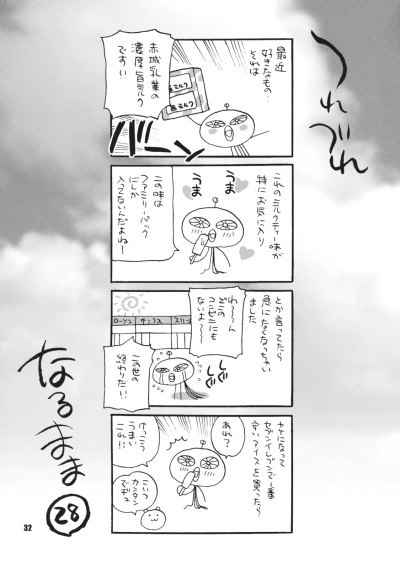 つれづれ
最近
好きなもの…
それは
赤城乳業の
濃厚旨ミルク
ですい
旨ミルク
バーン
これのミルクティー味が
特にお気に入り
うま
うま
この味は
ファミリーパック
にしか
入ってないんだよねー
とか言ってたら
急になくなっちゃい
ました
わ〜〜ん
どこの
コンビニにも
ないよ〜〜
ローソン
サンクス
スリー
この世の
終わりだ!!
ヤケになって
セブンイレブンで一番
安いアイスを買ったら
あれ?
けっこう
うまい
これ!!
こいつ
カンタン
でヂュ
なるまま
28
32